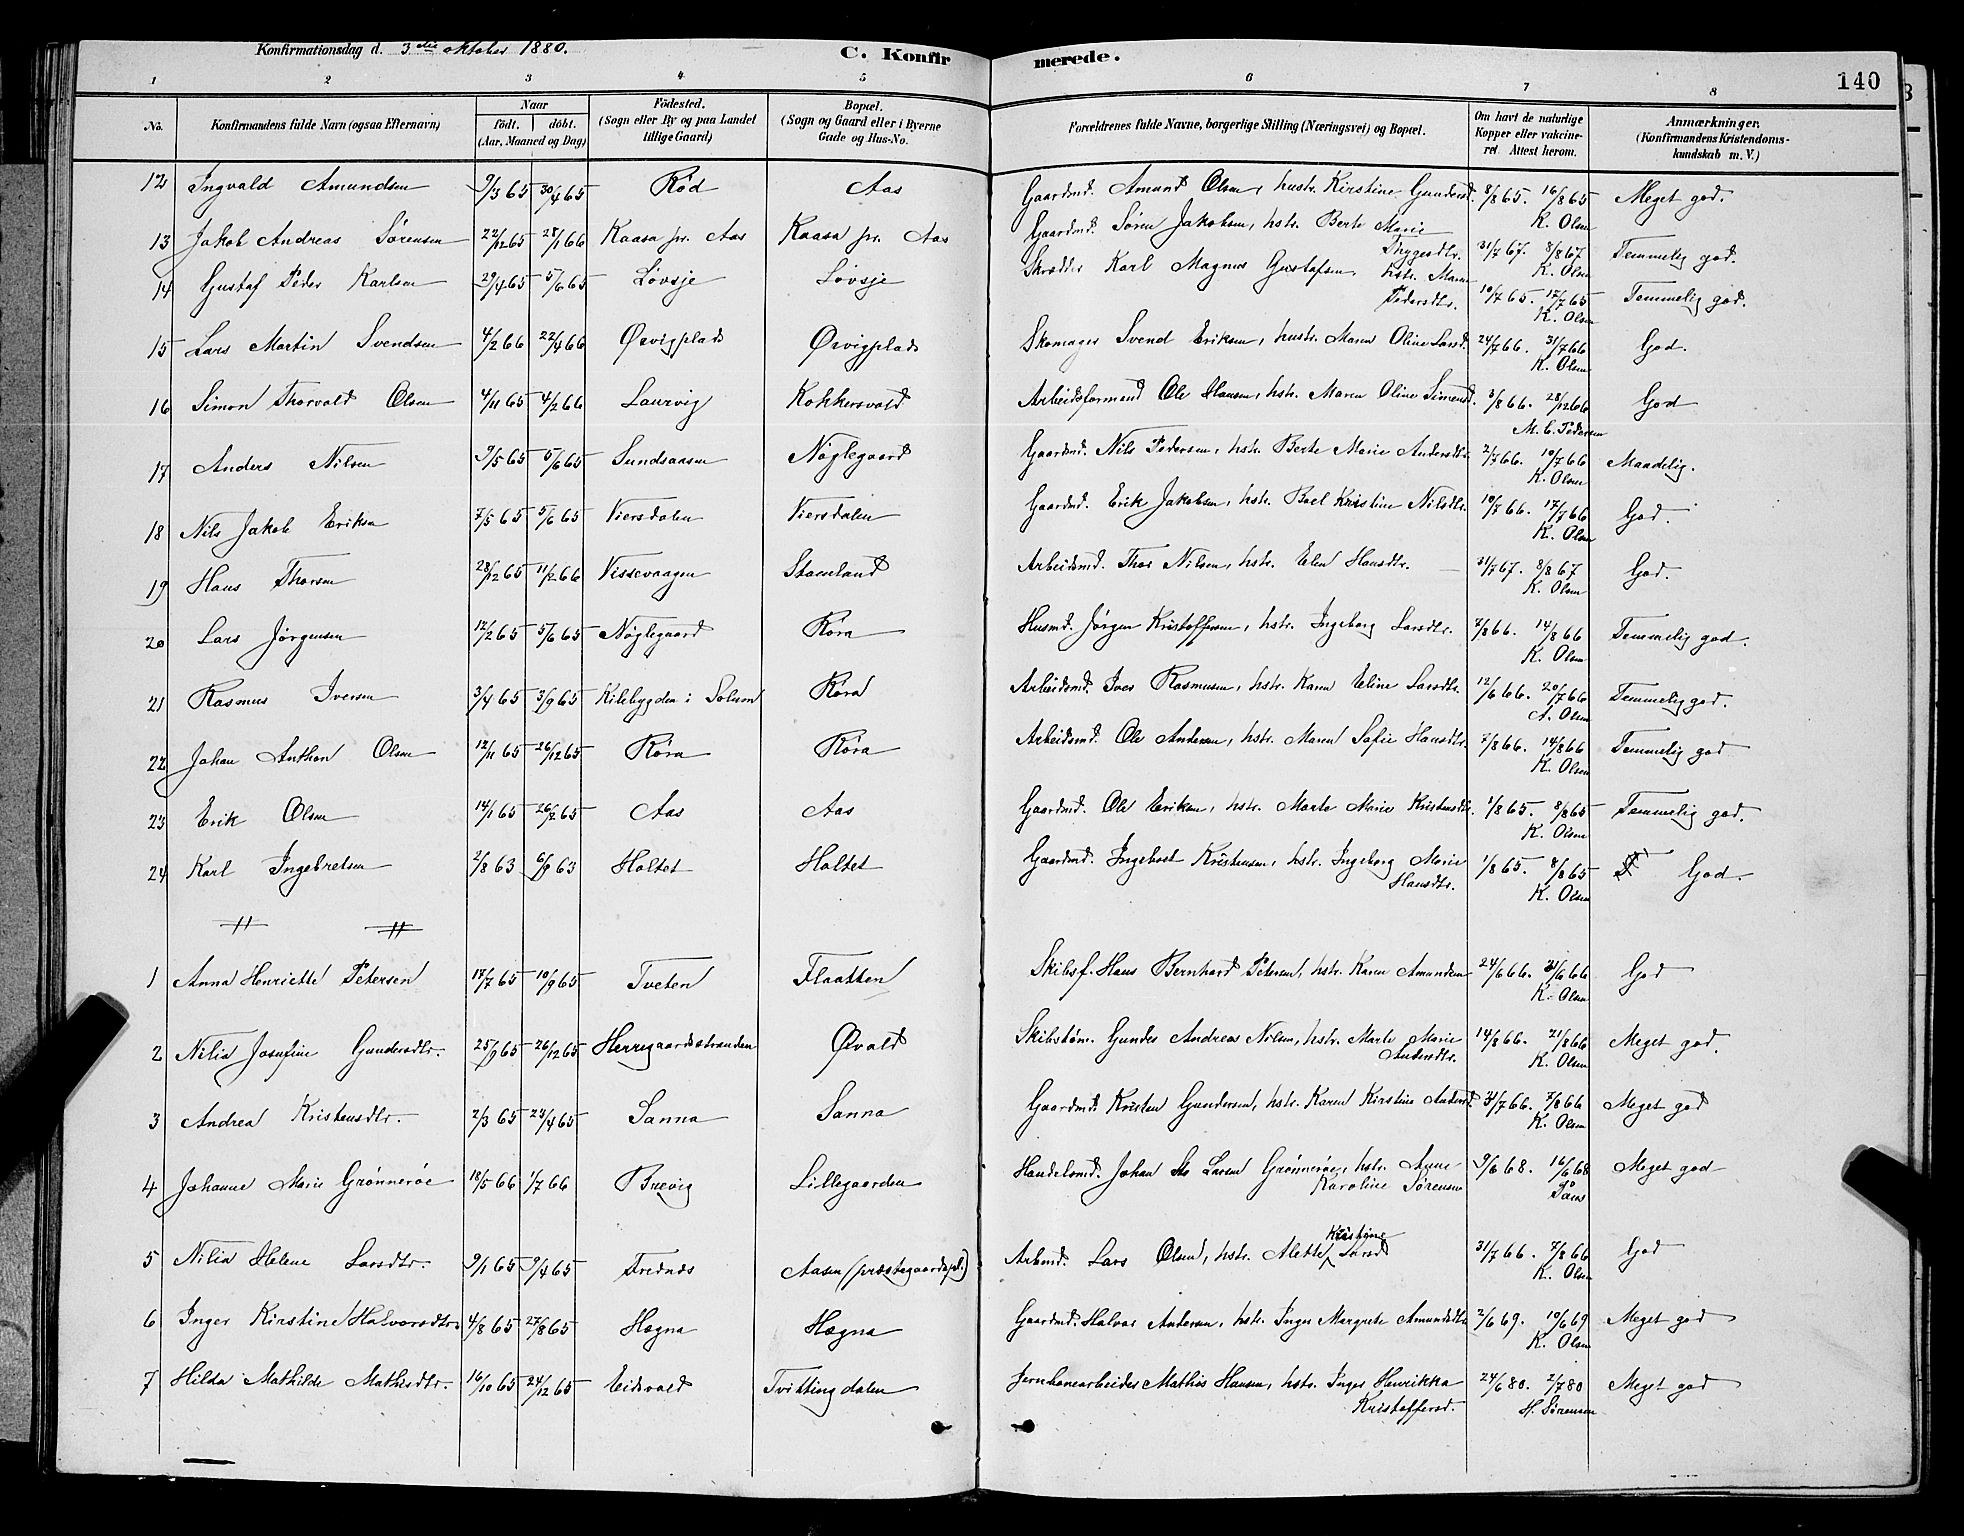 Konfirmationsdag d. 3die oktober 1880.
C. Konfirmerede.
140
1 2 3 4 5 6 7 8
No.
Konfirmandens fulde Navn (ogsaa Efternavn)
Naar
født. døbt.
(Aar, Maaned og Dag)
Fødested.
(Sogn eller By og paa Landet
tillige Gaard)
Bopæl.
(Sogn og Gaard eller i Byerne
Gade og Hus-No.
Forældrenes fulde Navne, borgerlige Stilling (Næringsvei) og Bopæl.
Om havt de naturlige
Kopper eller vakcine-
ret. Attest herom.
Anmærkninger.
(Konfirmandens Kristendoms-
kundskab m. V.)
12 Ingvald Amundsen 9/3 65 30/4 65 Rød Aas Gaardmd. Amund Olsen, hustr. Kirstine Gundersd. 8/8 65. 16/8 65 Meget god.
K. Olsen
13 Jakob Andreas Sørensen 22/12 65 28/1 66 Kaasa pr. Aas Kaasa pr. Aas Gaardmd. Søren Jakobsen, hstr. Berte Marie
Thygesdtr. 31/7 67. 8/8 67 Temmelig god.
K. Olsen
14 Gustaf Peder Karlsen 29/4 65 5/6 65 Løvsje Løvsje Skrædder Karl Magnus Gustafsen, hstr. Maren
Pedersdtr. 10/7 65. 17/7 65 Temmelig god.
K. Olsen
15 Lars Martin Svendsen 4/2 66 22/4 66 Ørvigplads Ørvigplads Skomager Svend Eriksen, hustr. Maren Oline Larsd. 24/7 66. 31/7 66 God.
K. Olsen
16 Simon Thorvald Olsen 4/11 65 4/2 66 Laurvig Kokkersvold Arbeidsformand Ole Hansen, hstr. Maren Oline Simensd. 3/8 66. 28/12 66 God
M. C. Pedersen
17 Anders Nilsen 9/5 65 5/6 65 Sundsaasen Nøglegaard Gaardmd. Nils Pedersen, hstr. Berte Marie Andersdtr. 2/7 66. 10/7 66 Maadelig.
K. Olsen
18 Nils Jakob Eriksen 7/5 65 5/6 65 Viersdalen Viersdalen Gaardmd. Erik Jakobsen, hstr. Boel Kirstine Nilsdtr. 10/7 66. 17/7 66 God.
K. Olsen
19 Hans Thorsen 28/12 65 11/2 66 Vissevaagen Stamland Arbeidsmd. Thor Nilsen, hstr. Elen Hansdtr. 31/7 67. 8/8 67 God.
K. Olsen
20 Lars Jørgensen 12/2 65 5/6 65 Nøglegaard Røra Husmd. Jørgen Kristoffersen, hstr. Ingeborg Larsdtr. 7/8 66. 14/8 66 Temmelig god.
K. Olsen
21 Rasmus Iversen 3/4 65 3/9 65 Kilebygden i Solum Røra Arbeidsmd. Iver Rasmusen, hstr. Karen Eline Larsdtr. 12/6 66. 20/7 66 Temmelig god.
A. Olsen
22 Johan Anthon Olsen 12/11 65 26/12 65 Røra Røra Arbeidsmd. Ole Andersen, hstr. Maren Sofie Hansdtr. 7/8 66. 14/8 66 Temmelig god
K. Olsen
23 Erik Olsen 14/1 65 26/2 65 Aas Aas Gaardmd. Ole Eriksen, hstr. Marte Marie Kristensdtr. 1/8 65. 8/8 65 Temmelig god.
K. Olsen
24 Karl Ingebretsen 2/8 63 6/9 63 Holtet Holtet Gaardmd. Ingebret Kristensen, hstr. Ingeborg Marie
Hansdtr. 1/8 65. 8/8 65 God.
K. Olsen
1 Anna Henriette Petersen 17/7 65 10/9 65 Tveten Flaatten Skibsf. Hans Bernhard Petersen, hstr. Karen Amundsen 24/6 66. 31/6 66 God
K. Olsen
2 Nilia Josefine Gundersdtr. 25/9 65 26/12 65 Herregaardsstranden Øvald Skibstøm. Gunder Andreas Nilsen, hstr. Marte Marie
Andersdtr. 14/8 66. 21/8 66 Meget god.
K. Olsen
3 Andrea Kristensdtr. 2/3 65 23/4 65 Sanna Sanna Gaardmd. Kristen Gundersen, hstr. Karen Kirstine Andersd. 31/7 66. 7/8 66 Meget god
K. Olsen
4 Johanne Marie Grønnerøe 18/5 66 1/7 66 Brevig Lillegaarden Handelsmd. Johan Larsen Grønnerøe, hstr. Anne
Karoline Sørensen 9/6 68. 16/6 68 Meget god
5 Nilia Helene Larsdtr. 9/1 65 9/4 65 Frednes Aasen (præstegaardspl.) Arbmd. Lars Olsen, hstr. Alette Kristine Larsd 31/7 66. 7/8 66 God
K. Olsen
6 Inger Kirstine Halvorsdtr. 4/8 65 27/8 65 Hægna Hægna Gaardmd. Halvor Andersen, hstr. Inger Margrete Amundsdtr. 2/6 69. 10/6 69 Meget god
K. Olsen
7 Hilda Mathilde Mathisdtr. 16/10 65 24/12 65 Eidsvold Tvittingdalen Jernbanearbeider Mathis Hansen, hstr. Inger Henrikka
Kristoffersd. 24/6 80. 2/7 80 Meget god
H. Sørensen